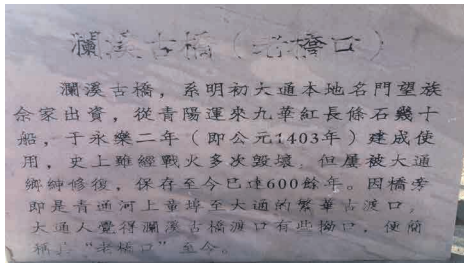 瀾溪古橋（老橋口）
瀾溪古橋，系明初大通本地名門望族
佘家出資，從青陽運來九華紅長條石幾十
船，于永樂二年（即公元1403年）建成使
用，史上雖經戰火多次毀壞，但屢被大通
鄉紳修復，保存至今已達600餘年。因橋旁
即是青通河上童埠至大通的繁華古渡口，
大通人覺得瀾溪古橋渡口有些拗口，便簡
稱為“老橋口”至今。